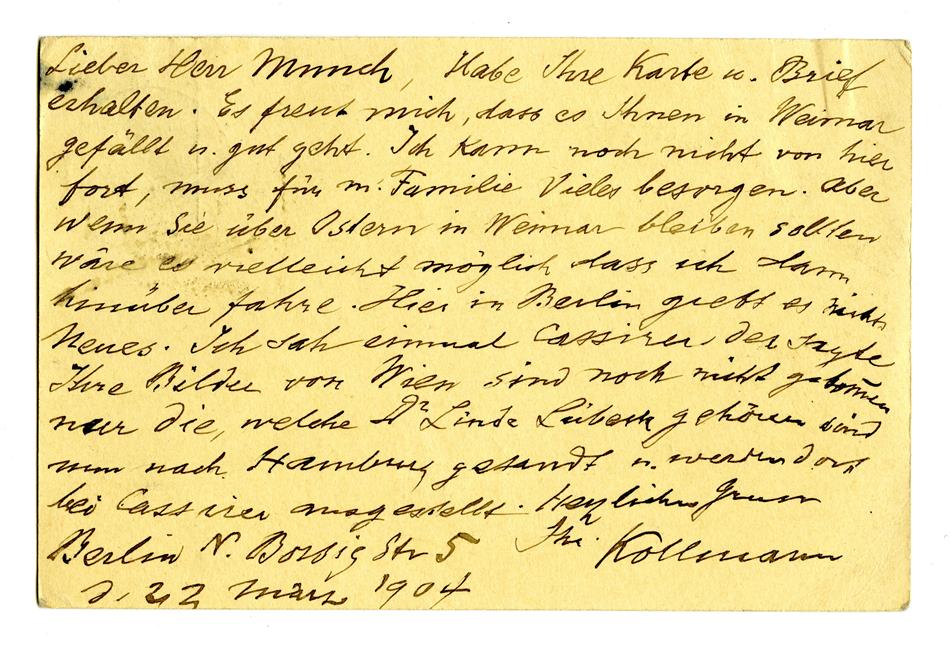 Lieber Herr Munch, Habe Ihre Karte u. Brief
erhalten. Es freut mich, dass es Ihnen in Weimar
gefällt u. gut geht. Ich kann noch nicht von hier
fort, muss für m. Familie Vieles besorgen. Aber
wenn Sie über Ostern in Weimar bleiben sollten
wäre es vielleicht möglich dass ich dann
hinüber fahre. Hier in Berlin giebt es nichts
Neues. Ich sah einmal Cassirer der sagte
Ihre Bilder von Wien sind noch nicht gekommen
nur die, welche Dr Linde Lübeck gehören sind
nun nach Hamburg gesandt u. werden dort
bei Cassirer ausgestellt. Herzlichen Gruss
Berlin N. Borsig Str 5 Ihr Kollmann
d. 22 März 1904